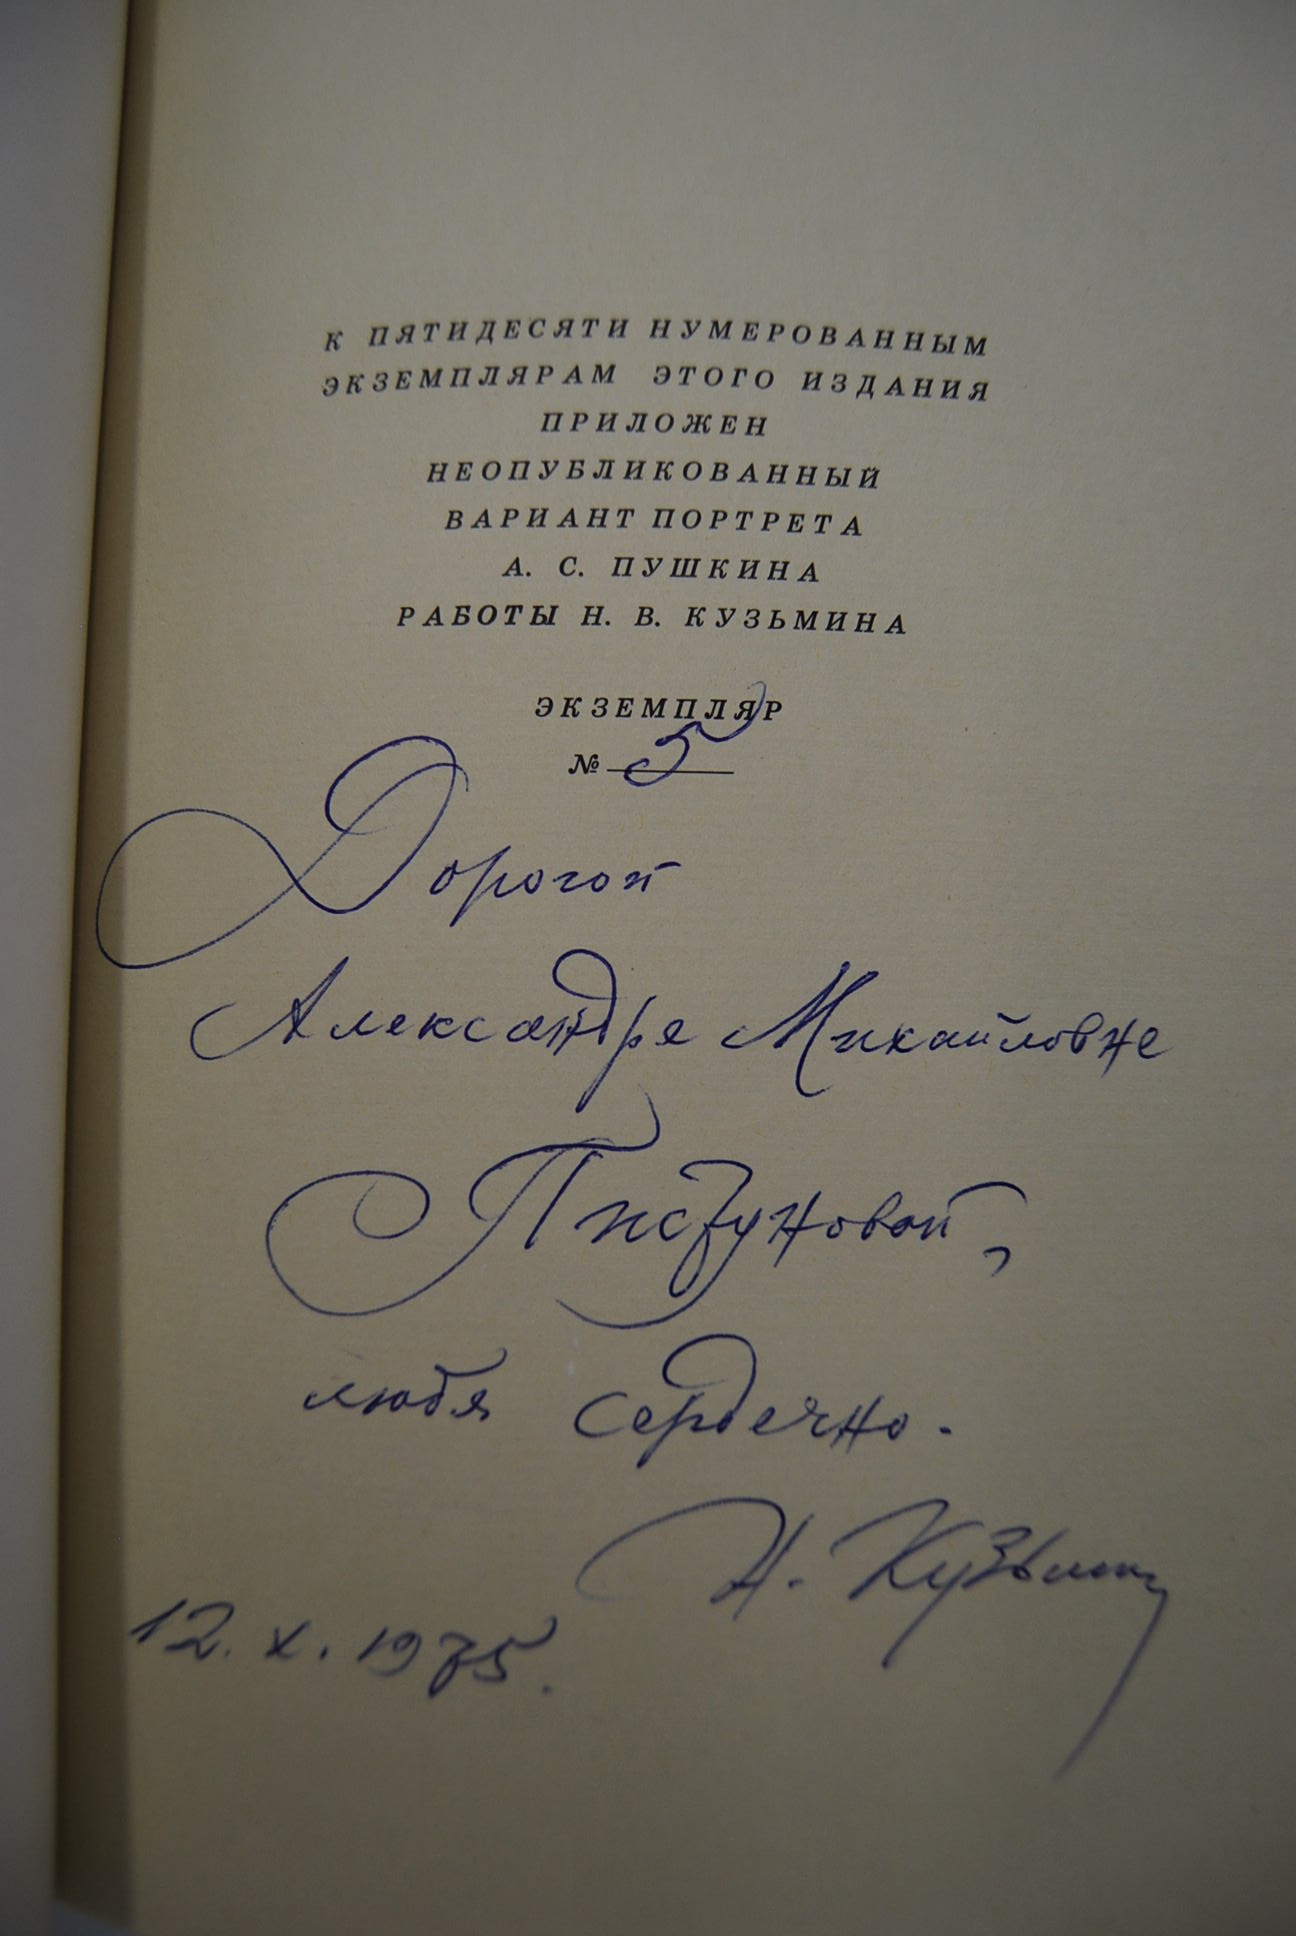 К ПЯТИДЕСЯТИ НУМЕРОВАННЫМ
ЭКЗЕМПЛЯРАМ ЭТОГО ИЗДАНИЯ
ПРИЛОЖЕН
НЕОПУБЛИКОВАННЫЙ
ВАРИАНТ ПОРТРЕТА
А. С. ПУШКИНА
РАБОТЫ Н. В. КУЗЬМИНА
ЭКЗЕМПЛЯР
№ 5
Дорогой
Александре Михайловне
Пистуновой,
любя сердечно.
Н. Кузьмин
12. X. 1975.